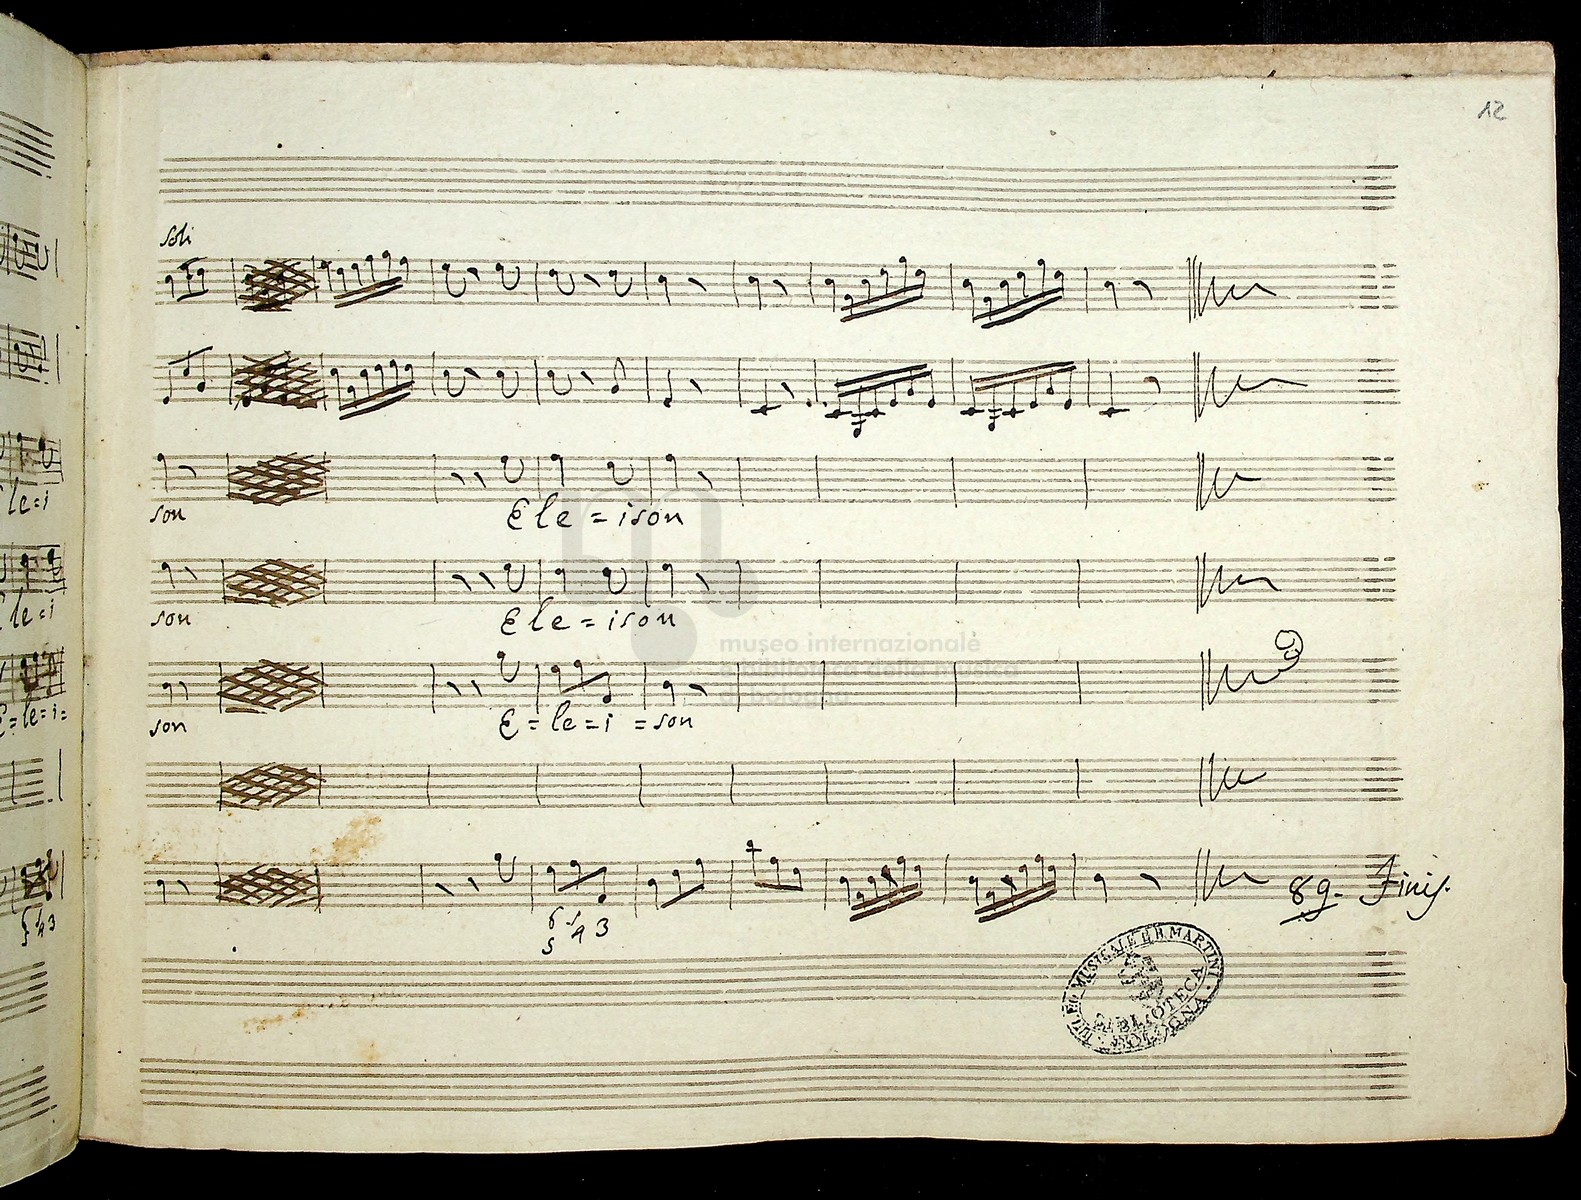 12
Soli
son
Ele = ison
son
Ele = ison
son
E = le = i = son
6 5
5 4 3
89. Finis.
LICEO MUSICALE G.B. MARTINI
BIBLIOTECA
BOLOGNA
museo internazionale
e biblioteca della musica
di bologna
le = i
le = i
E = le = i =